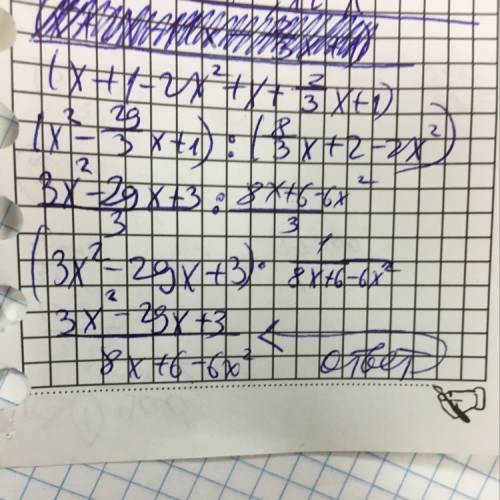 (x+1-2x²+x+2/3x+1)
(x²-29/3x+1):(8/3x+2-2x²)
3x²-29x+3/3:8x+6-6x²/3
(3x²-29x+3)·1/8x+6-6x²
3x²-29x+3/8x+6-6x² ответ